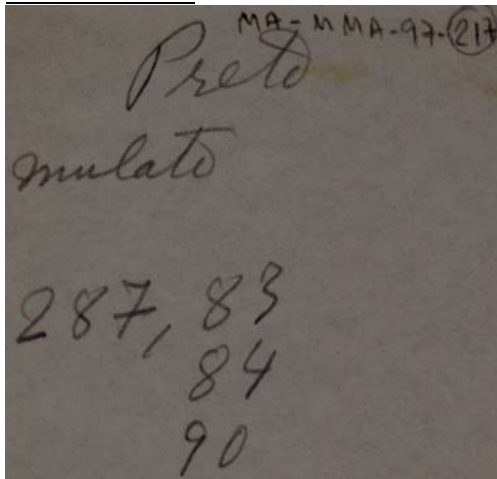 MA-MMA-97-217
Preto
mulato
287, 83
84
90